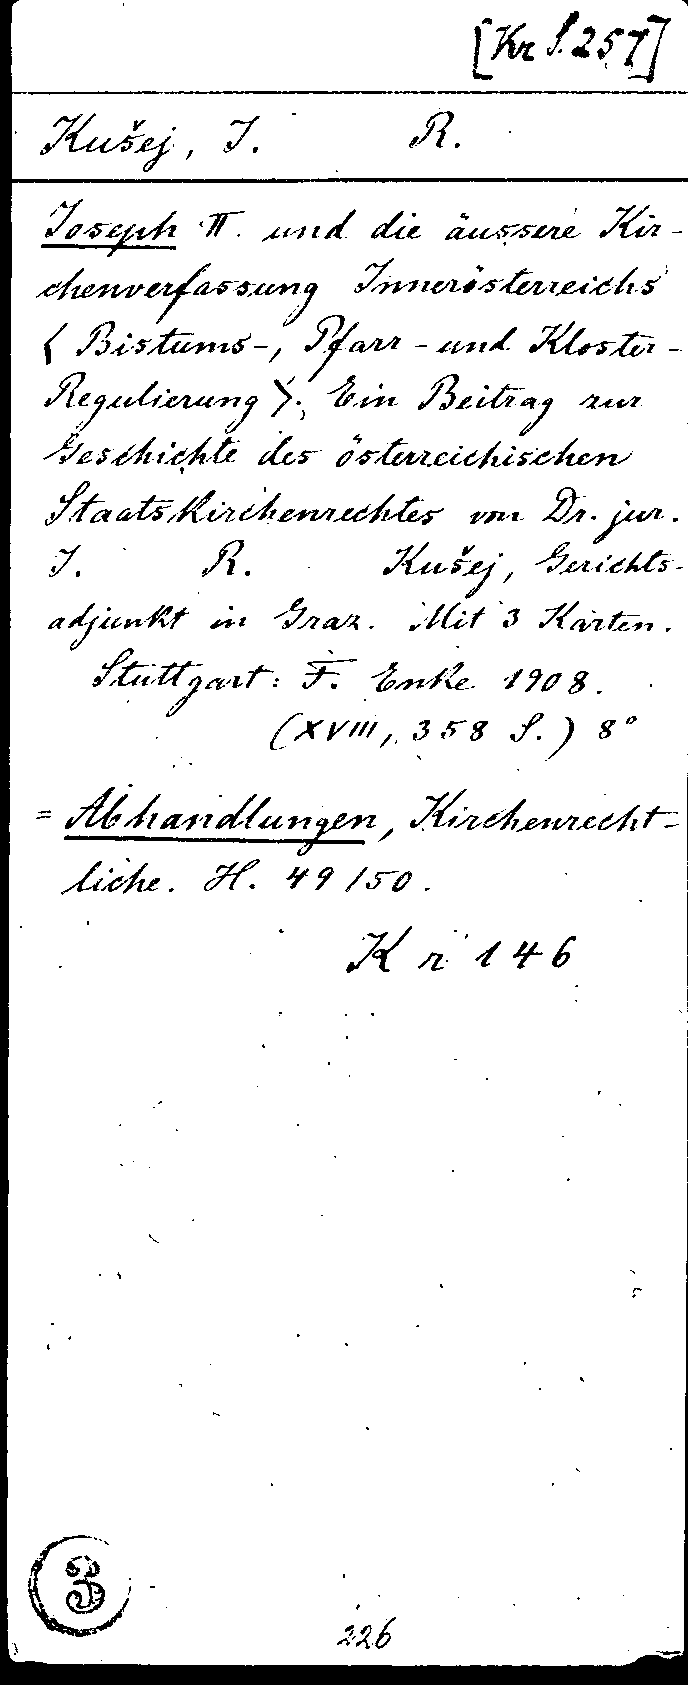 [Kr S. 257]
Kušej, J. R.
Joseph II. und die äussere Kir-
chenverfassung Innerösterreichs
< Bistums-, Pfarr- und Kloster-
Regulierung >. Ein Beitrag zur
Geschichte des österreichischen
Staatskirchenrechtes von Dr. jur.
J. R. Kušej, Gerichts-
adjunkt in Graz. Mit 3 Karten.
Stuttgart: F. Enke 1908.
(XVIII, 358 S.) 8°
= Abhandlungen, Kirchenrecht-
liche. H. 49/50.
Kr 146
3
226